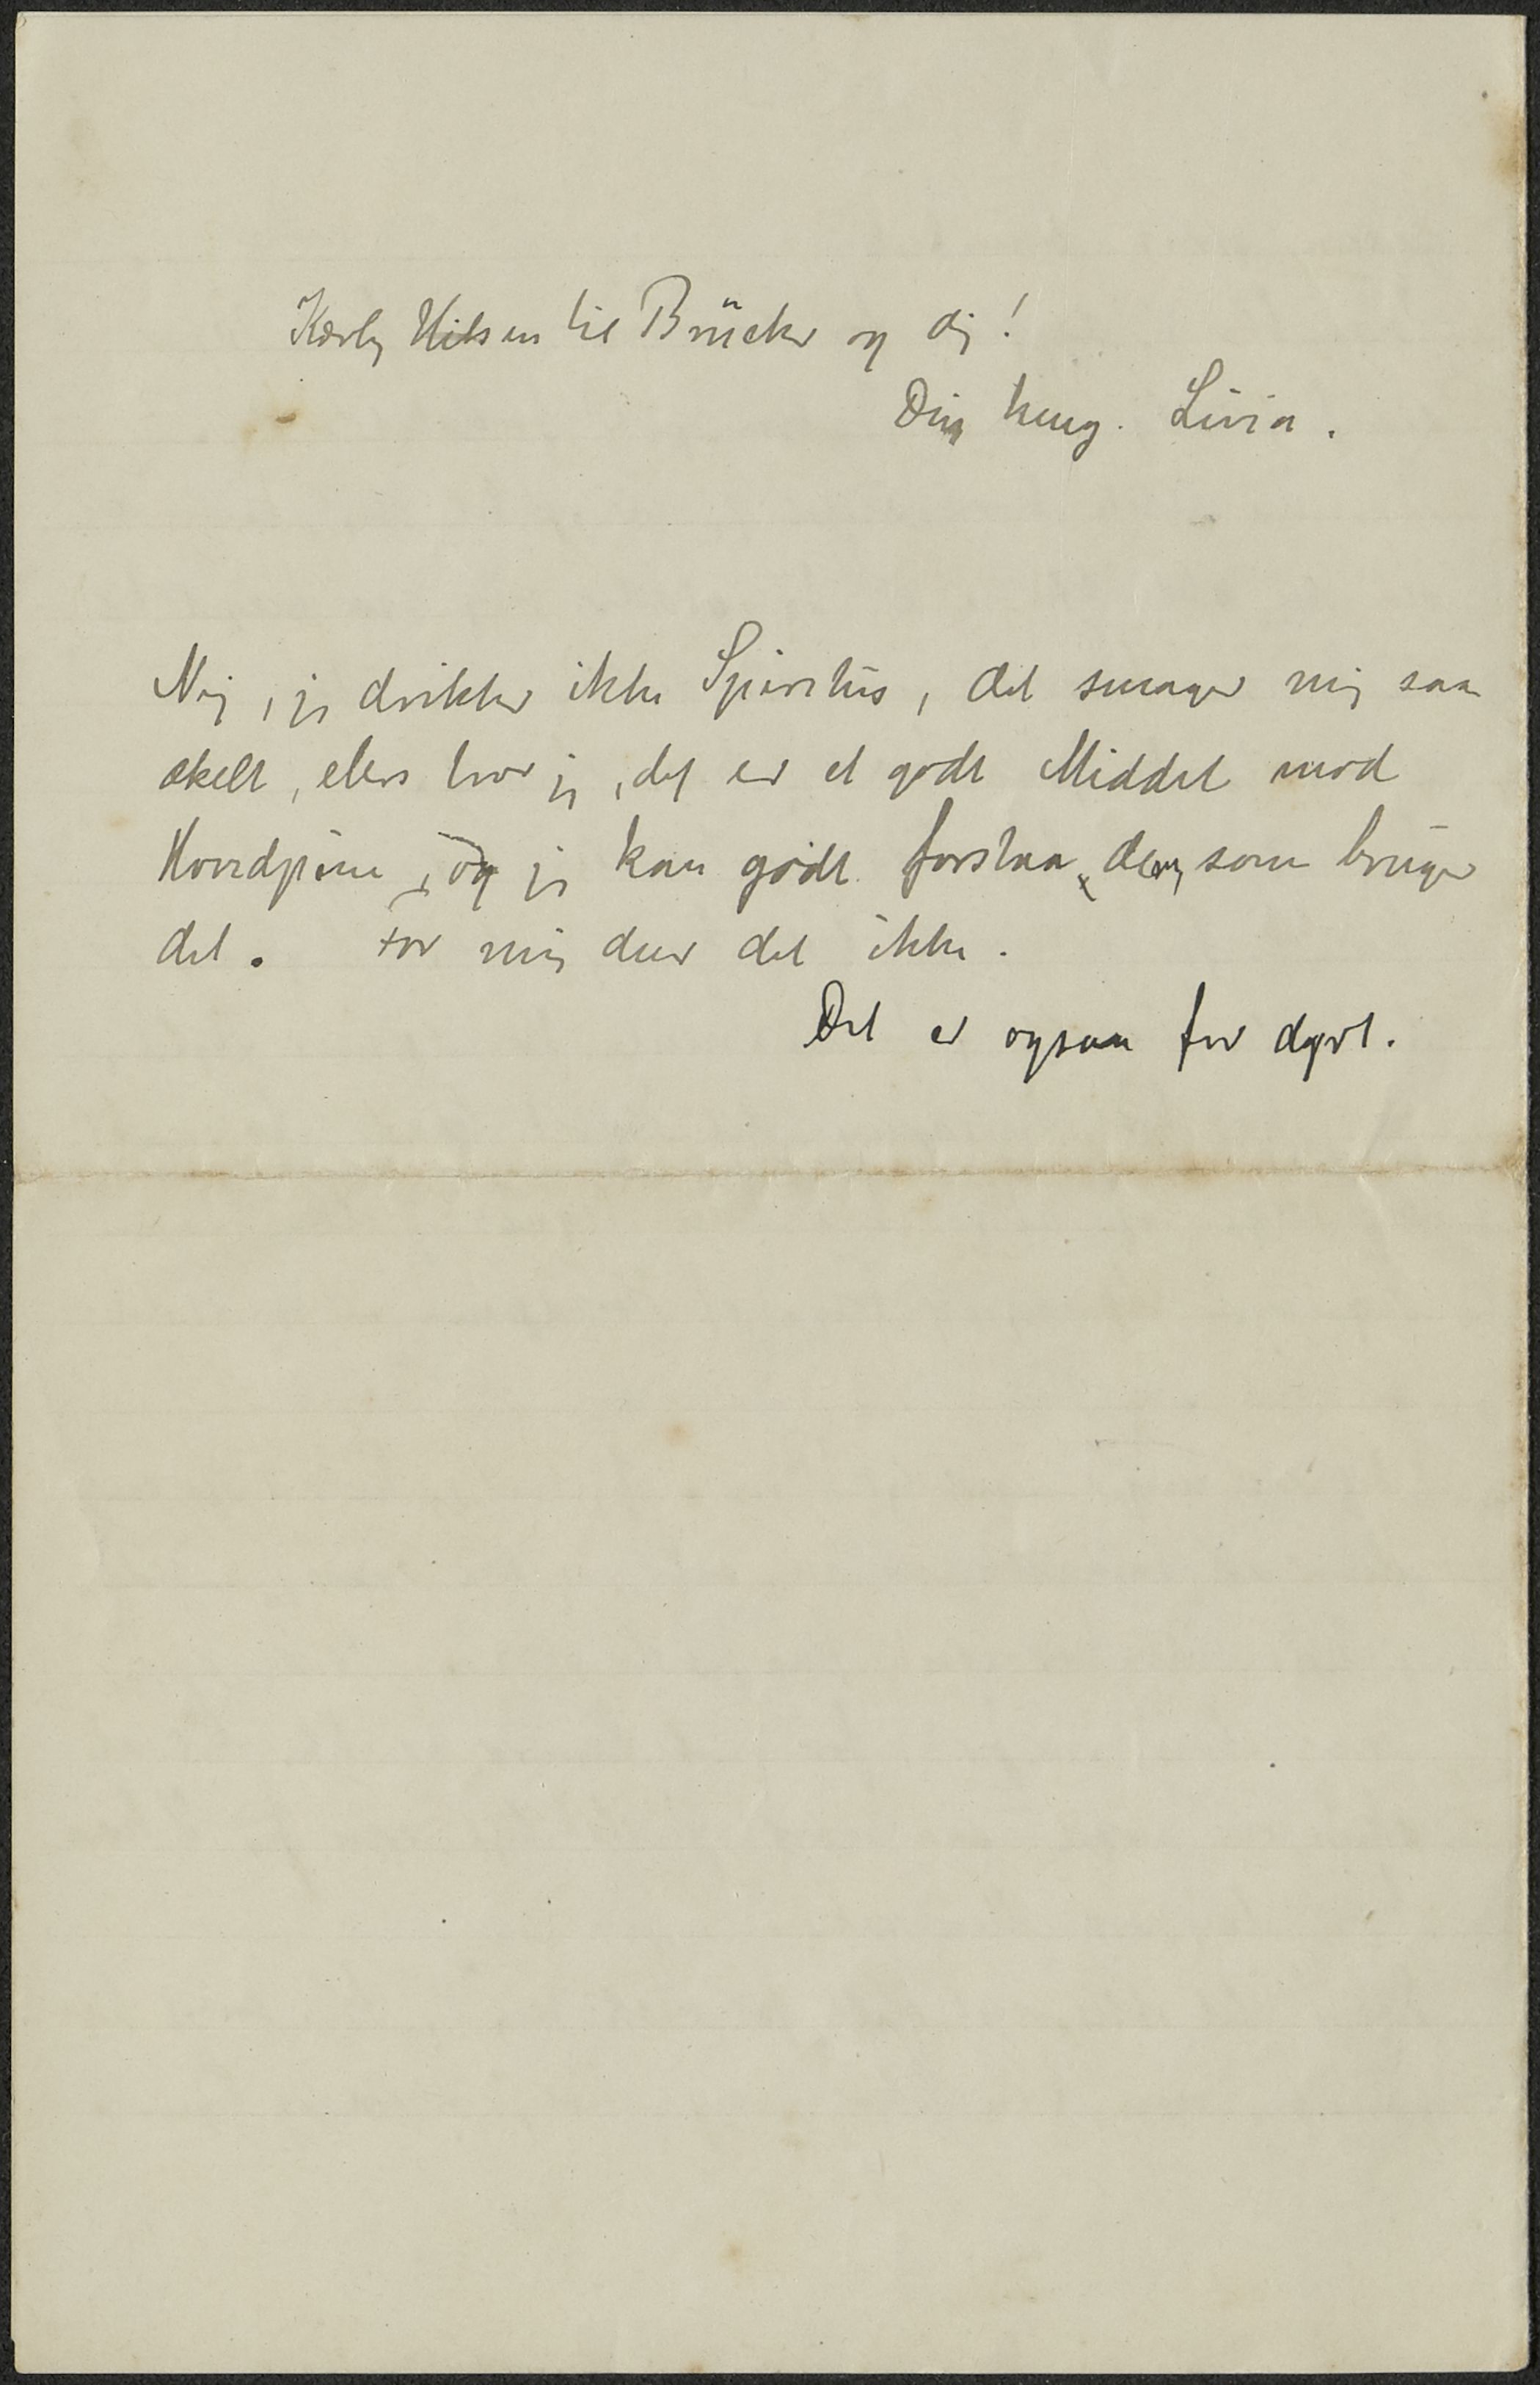 Kærlig Hilsen til Brücker og dig!
Din heng. Livia.
Nej, jeg drikker ikke Spiritus, det smager mig saa
ækelt, ellers tror jeg, det er et godt Middel mod
Hovedpine, og jeg kan godt forstaa, dem, som bruger
det. For mig duer det ikke.
Det er ogsaa for dyrt.